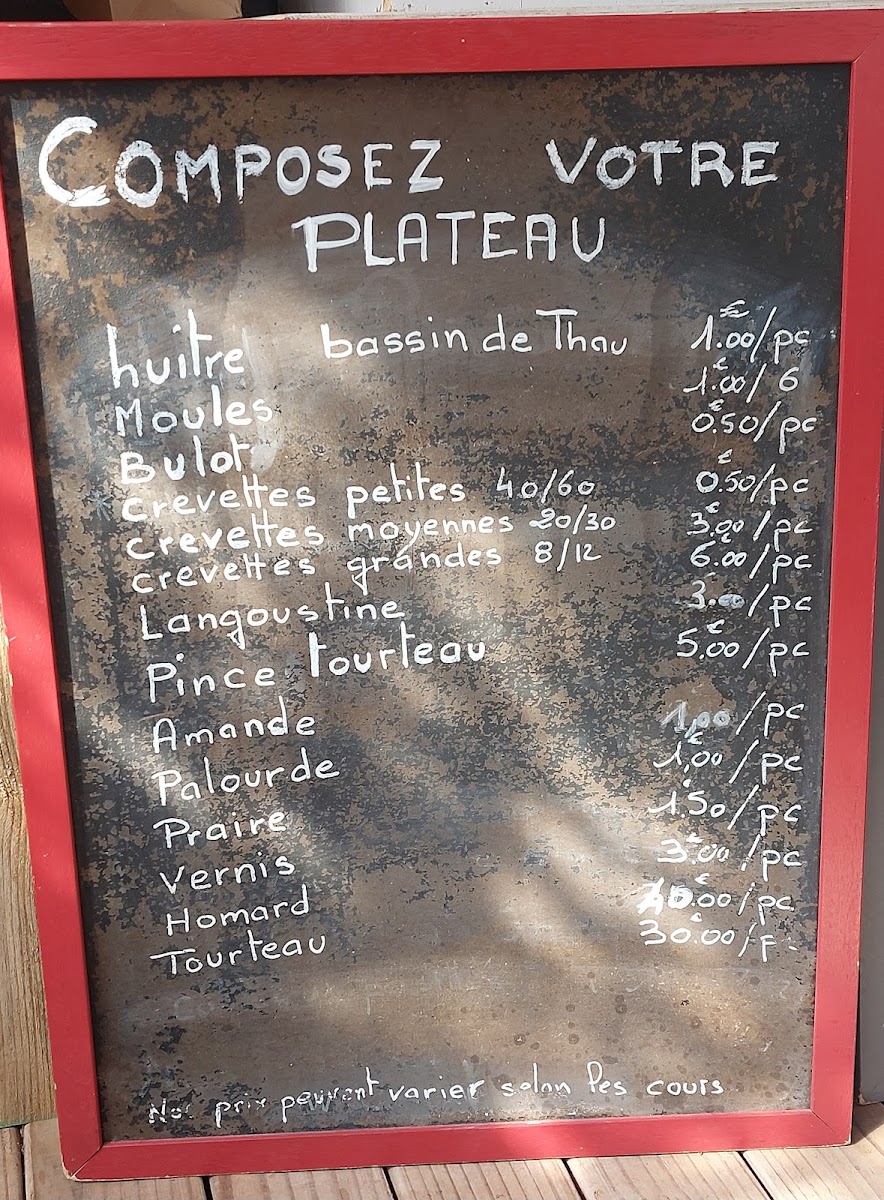 COMPOSEZ VOTRE
PLATEAU
huitre bassin de Thau 1.00€/pc
Moules 1.00€/6
Bulot 0.50€/pc
* crevettes petites 40/60 0.50€/pc
crevettes moyennes 20/30 3.00€/pc
crevettes grandes 8/12 6.00€/pc
Langoustine 3.00€/pc
Pince tourteau 5.00€/pc
Amande 1,00/pc
Palourde 1,00€/pc
Praire 1.50€/pc
Vernis 3.00€/pc
Homard /pc
Tourteau 30.00€/p
Nos prix peuvent varier selon les cours